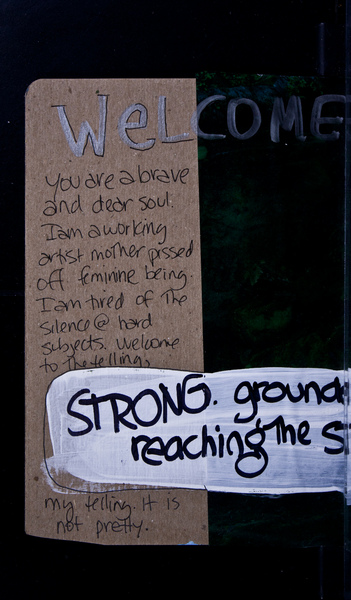 WeLCOME
You are a brave
and dear soul.
I am a working
artist mother pissed
off feminine being.
I am tired of the
silence @ hard
subjects. Welcome
to the telling,
STRONG. ground
reaching the S
my telling. It is
not pretty.